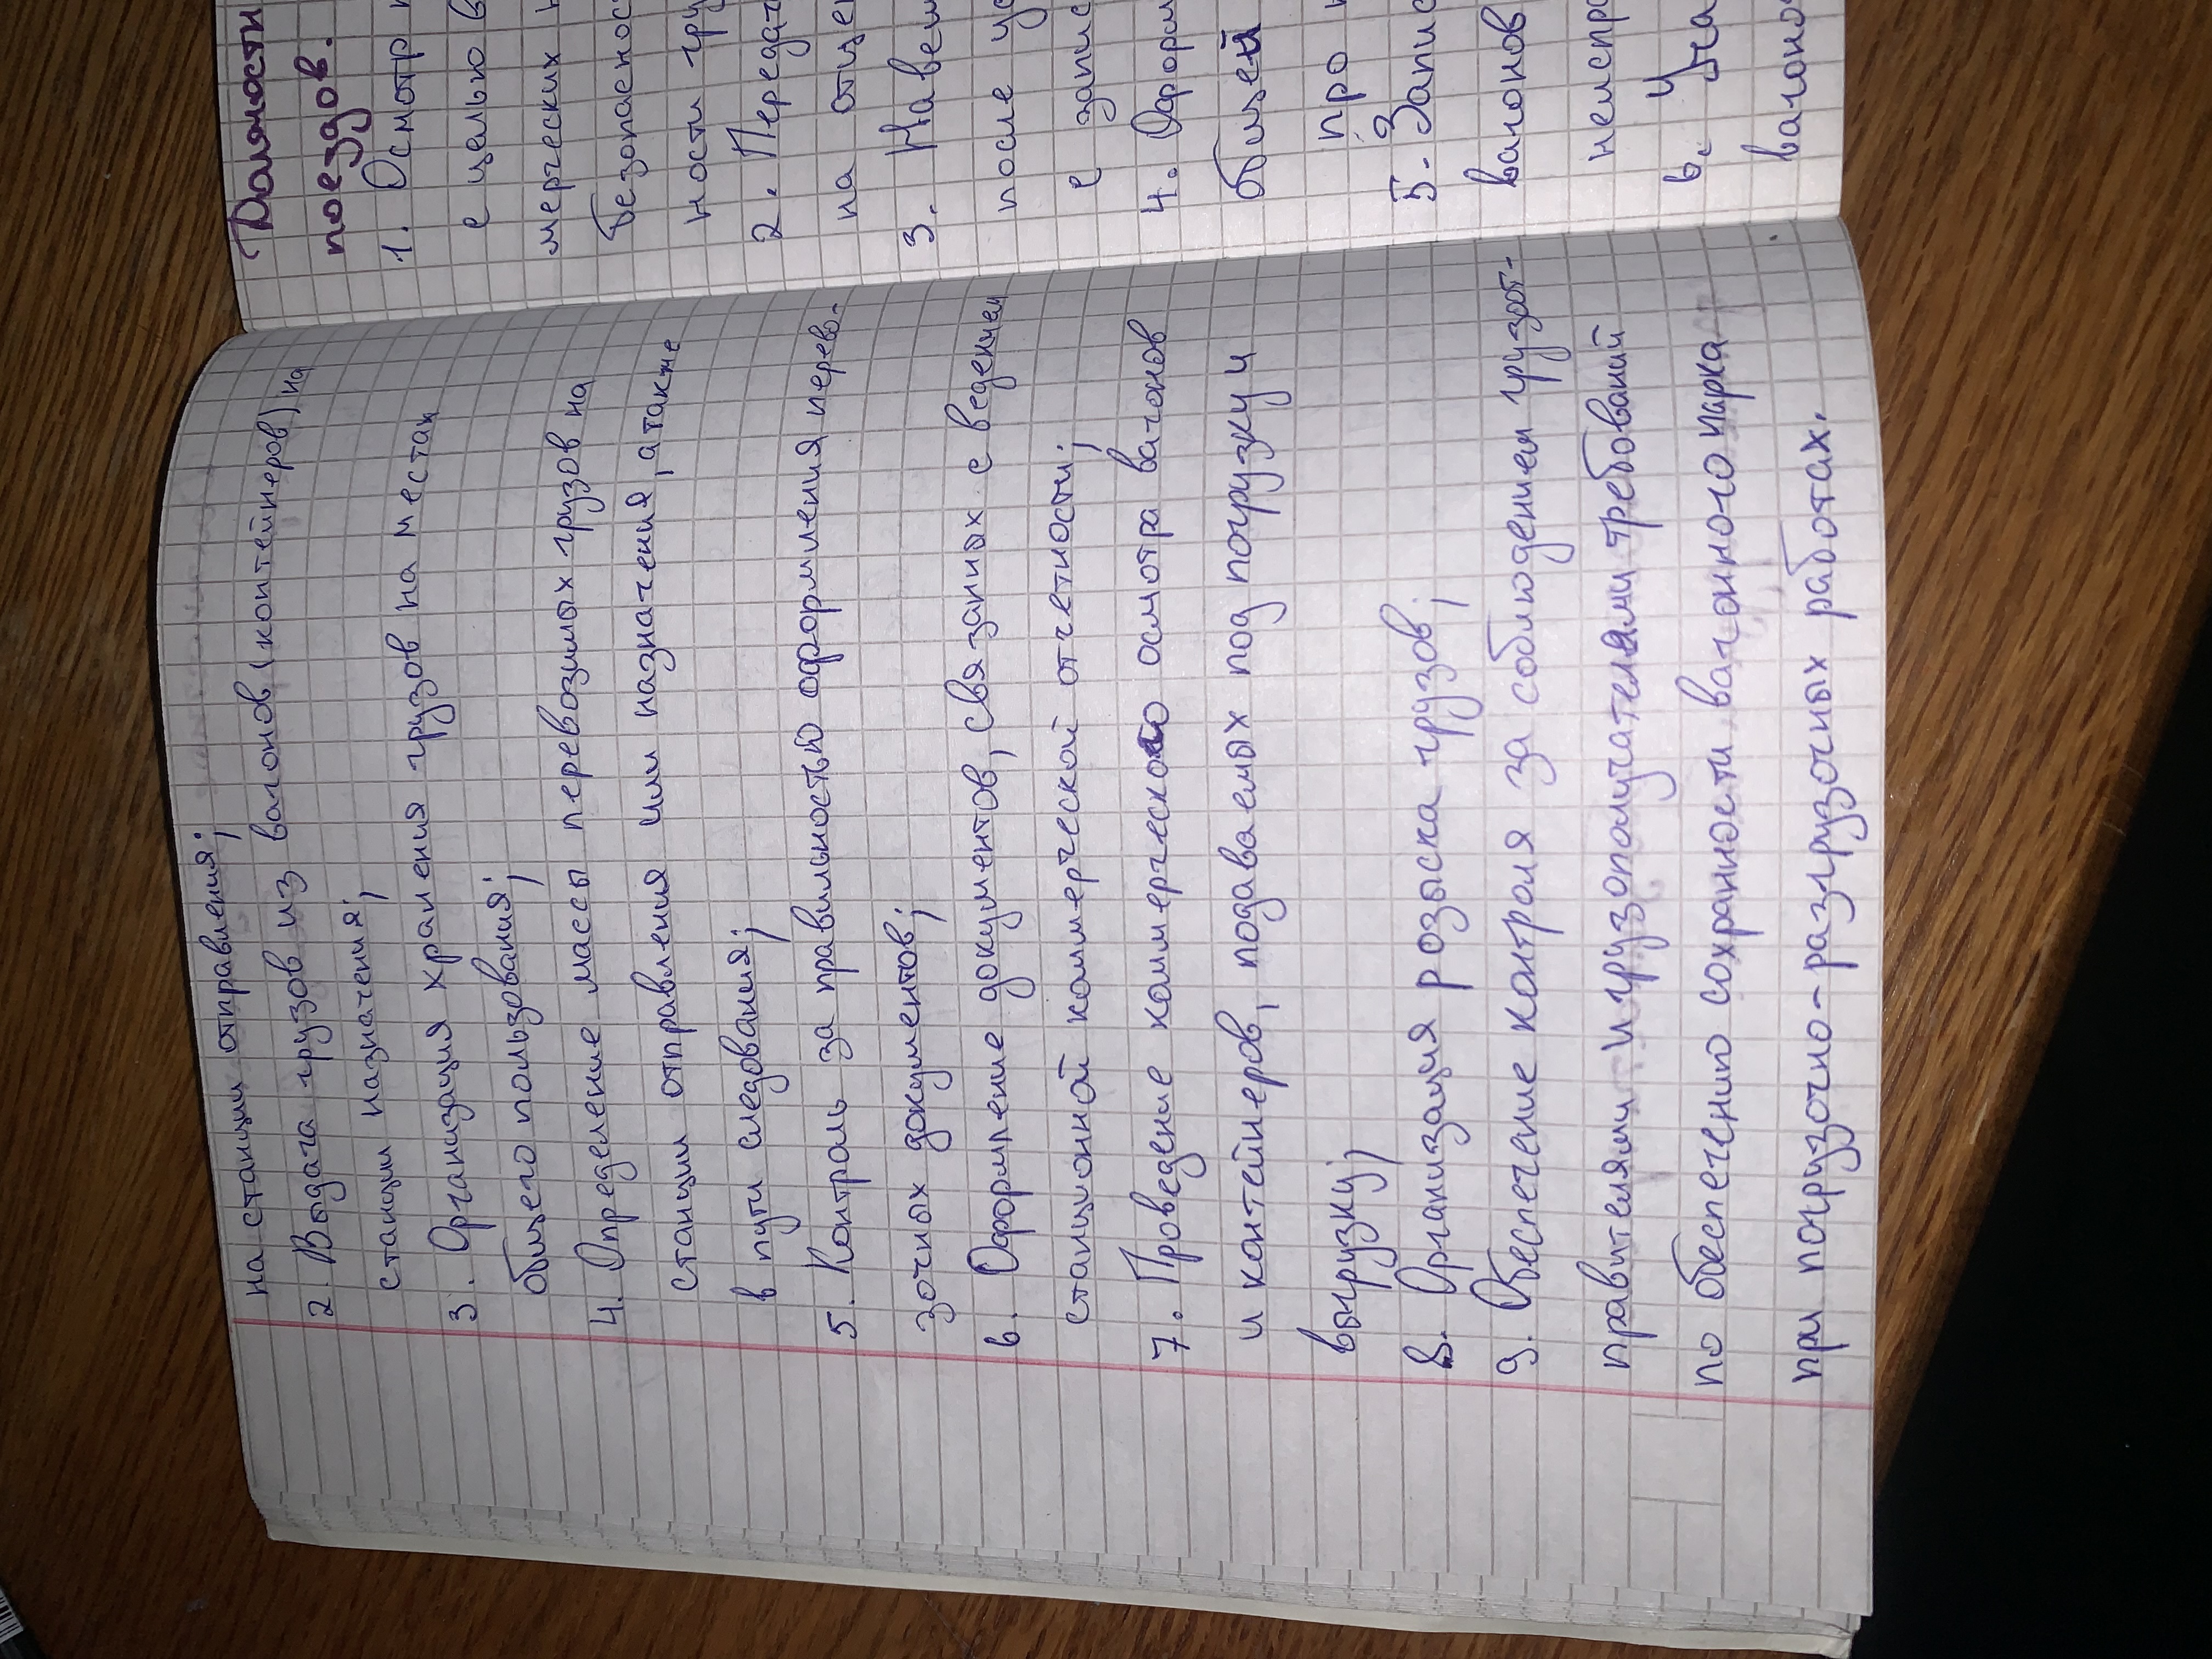 на станции отправления;
2. Выдача грузов из вагонов (контейнеров) на
станции назначения;
3. Организация хранения грузов на местах
общего пользования;
4. Определение массы перевозимых грузов на
станции отправления или назначения, а также
в пути следования;
5. Контроль за правильностью оформления перево-
зочных документов;
6. Оформление документов, связанных с ведением
станционной коммерческой отчетности;
7. Проведение коммерческого осмотра вагонов
и контейнеров, подаваемых под погрузку и
выгрузку;
8. Организация розыска грузов;
9. Обеспечение контроля за соблюдением грузот-
правителями и грузополучателями требований
по обеспечению сохранности вагонного парка
при погрузочно-разгрузочных работах.
Должности
поездов.
1. Осмотр
с целью в
мерческих н
безопаснос
ности гру
2. Передат
на отце
3. Навеш
после ус
с запис
4. Оформ
общей
про
5. Запис
вагонов
неиспр
6. Уча
вагоно